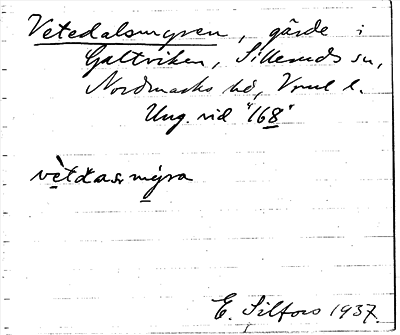 Vetedalsmyren, gärde i
Galtviken, Silleruds sn,
Nordmarks hd, Vrml l.
Ung. vid "168"
vètdas mýra
E. Silfors 1937.